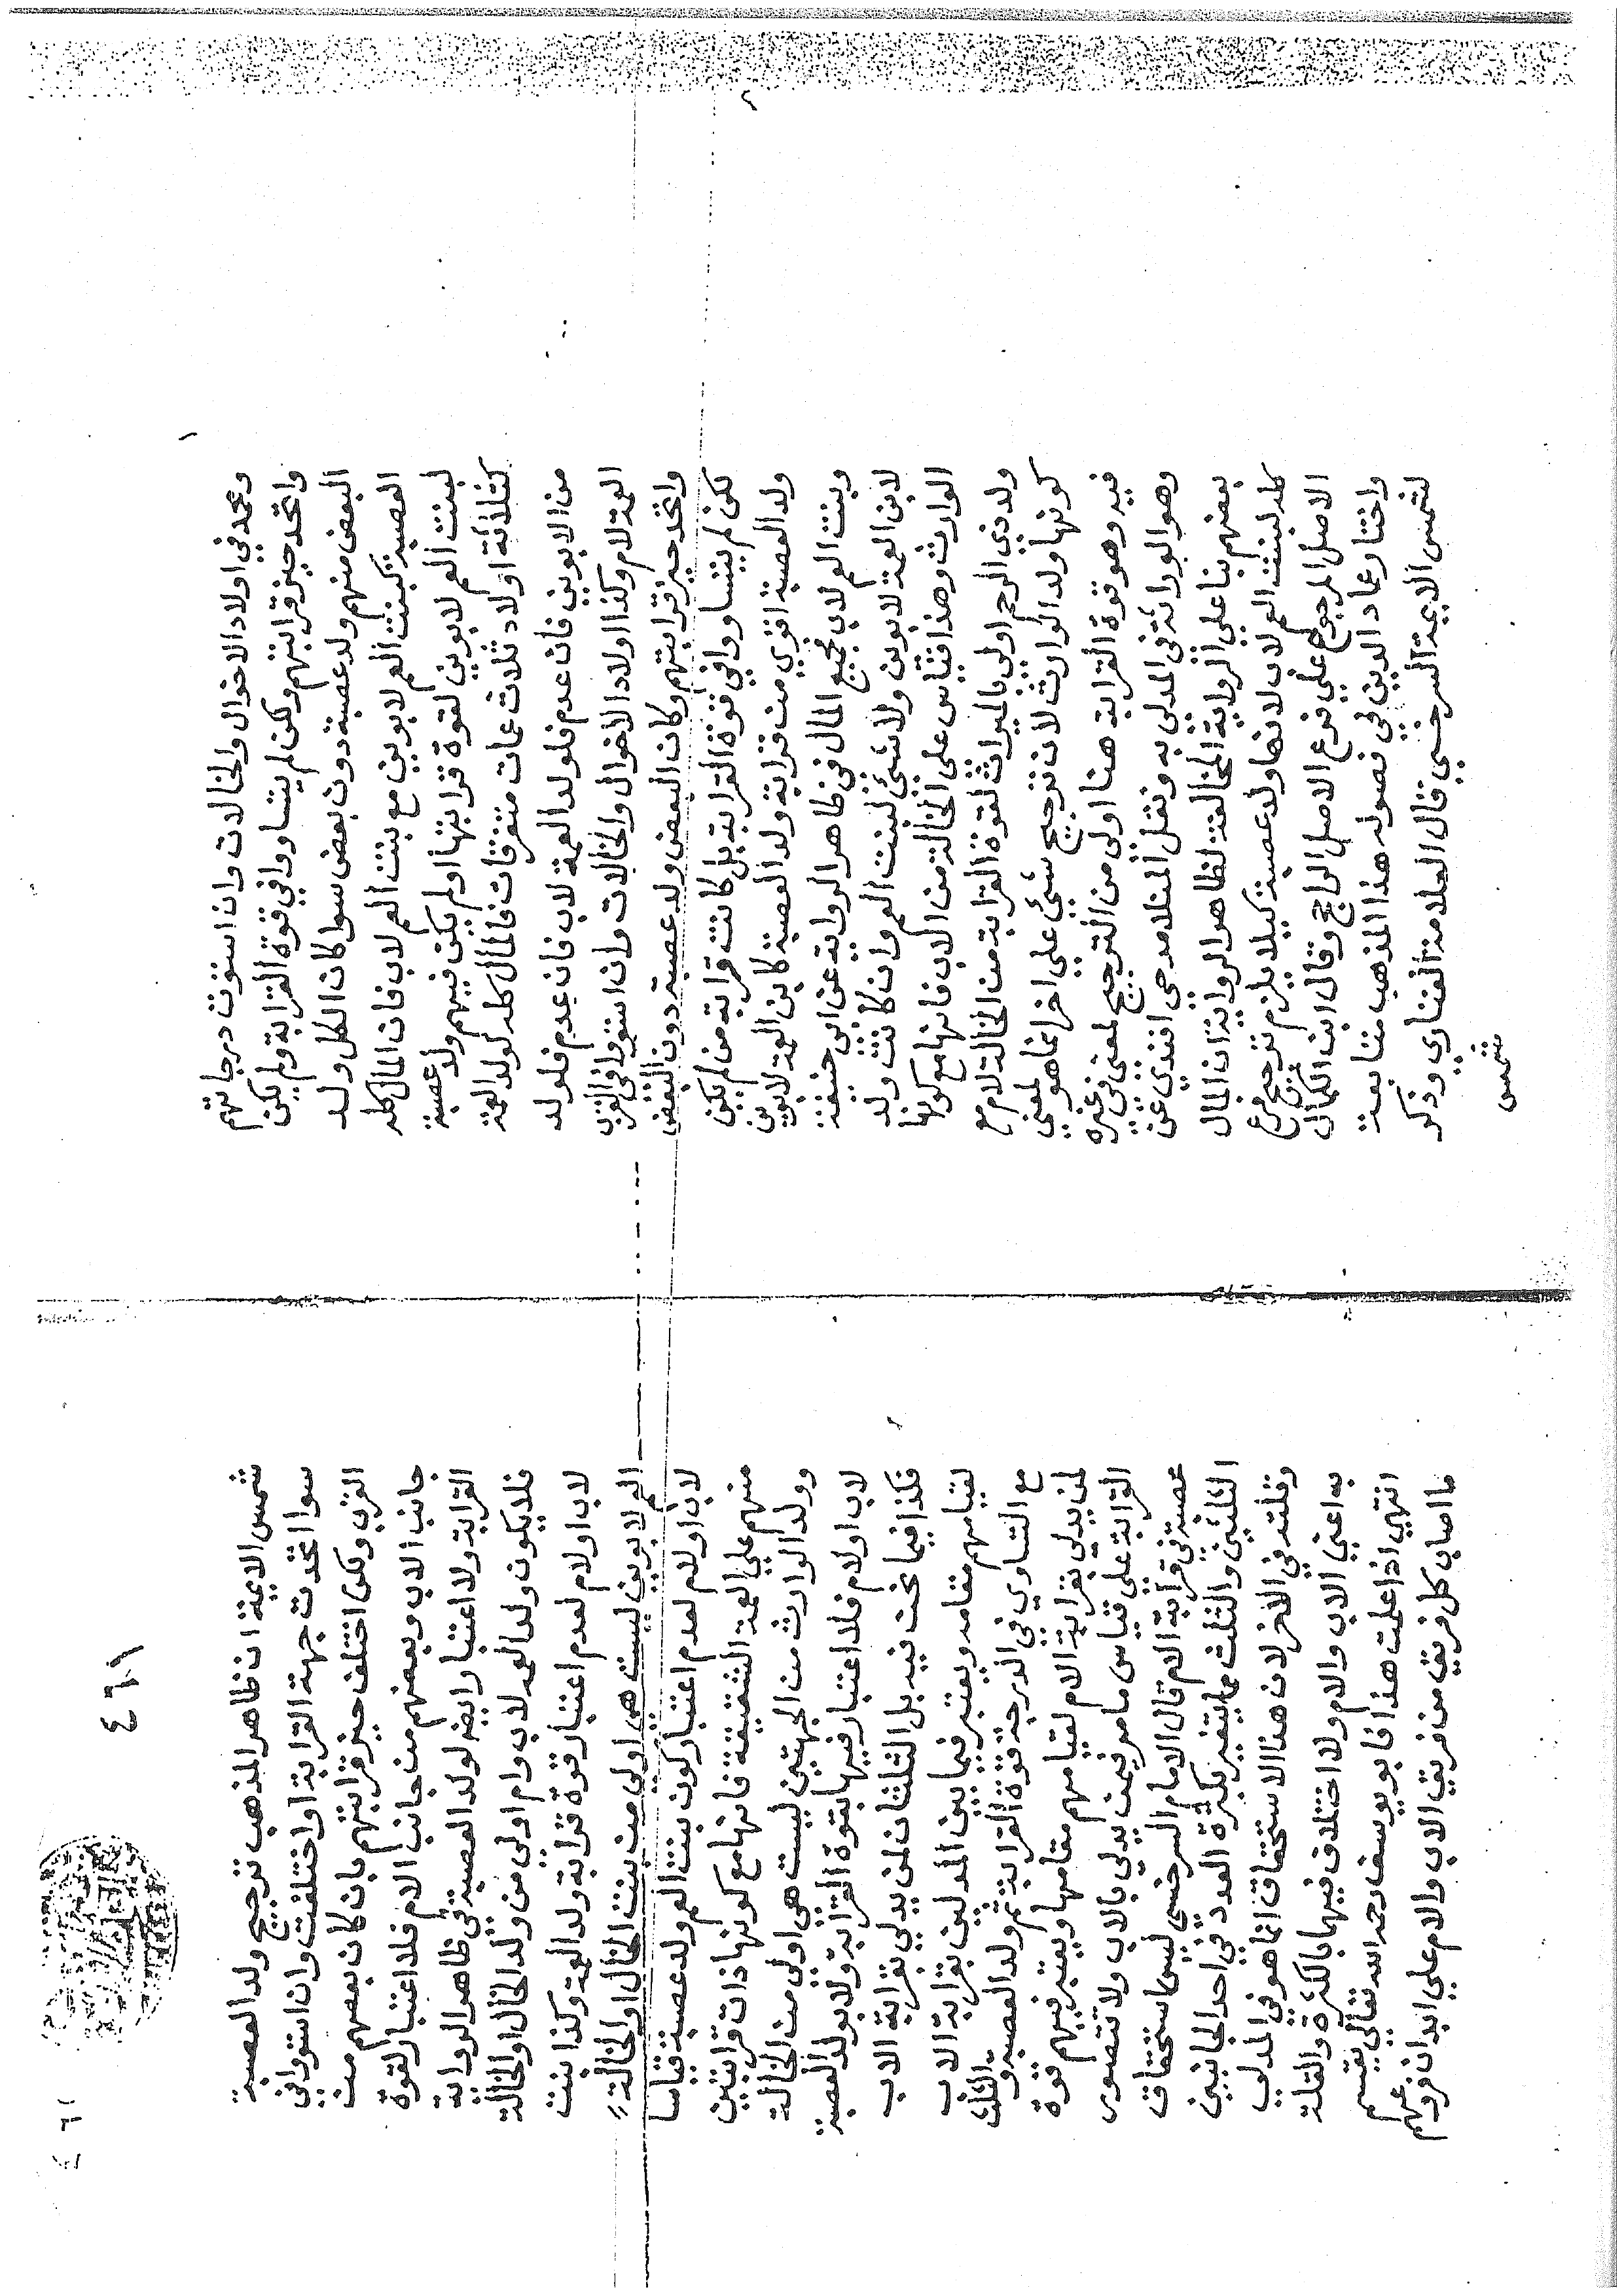 وعمد في اولاد الاخوال والخالات وان استوت درجاتهم
واتحد حيز قرابتهم ولكن لم يتساووا في قوة القرابة ولم يكن
البعض منهم ولد عصبة دون بعض سوا كان الكل ولد
العصبة كبنت العم لابوين مع بنت العم لاب فان المال كله
لبنت العم لابوين لقوة قرابتها اولم يكن فيهم ولا عصبة
كثلاثة اولاد ثلاث عمات متفرقات فالمال كله لولد العمة
من الابوين فان عدم فلولد العمة لاب فان عدم فلولد
العمة لام وكذا اولاد الاخوال والخالات وان استووا في القرب
واتحد حيز قرابتهم وكان البعض ولد عصبة دون البعض
لكن لم يتساووا في قوة القرابة بل كانت قرابة من لم يكن
ولد العصبة اقوي من قرابة ولد العصبة كابن العمة لابوين
وبنت العم لاب فجميع المال في ظاهر الرواية عن ابي حنيفة
لابن العمة لابوين ولا شئ لبنت العم وان كانت ولد
الوارث وهذا قياس علي الخالة من الاب فانها مع كونها
ولد ذي الرحم اولي بالميراث لقوة القرابة من الخالة لام مع
كونها ولد الوارث لان ترجيح شئ علي اخر انما هو لمعني
فيه وهو قوة القرابة هنا اولي من الترجيح لمعني في غيره
وهو الوراثة في المدلي به ونقل المنلا مدحي افندي عن
بعضهم بنا علي الرواية المخالفة لظاهر الرواية ان المال
كله لبنت العم لاب لانها ولد عصبة كيلا يلزم ترجيح فرع
الاصل المرجوح علي فرع الاصل الراجح وقال ابن الكمال
واختار عماد الدين في فصوله هذا المذهب متابعة
لشمس الايمة السرخسي قال العلامة الفناري وذكر
شمس
٤٦١
شمس الايمة ان ظاهر المذهب ترجيح ولد العصبة
سوا اتحدت جهة القرابة او اختلفت وان استووا في
القرب ولكن اختلف حيز قرابتهم بان كان بعضهم من
جانب الاب وبعضهم من جانب الام فلا اعتبار لقوة
القرابة ولا اعتبار ايضا لولد العصبة في ظاهر الرواية
فلا يكون ولد العمة لاب وام اولي من ولد الخال او الخالة
لاب او لام لعدم اعتبار قوة قرابة ولد العمة وكذا بنت
العم لابوين ليست هي اولي من بنت الخال او الخالة
لاب او لام لعدم اعتبار كون بنت العم ولد عصبة قياسا
منهم علي العمة الشقيقة فانها مع كونها ذات قرابتين
وولد الوارث من الجهتين ليست هي اولي من الخالة
لاب او لام فلا اعتبار فيها بقوة القرابة ولا بولد العصبة
فكذا فيما نحن فيه بل الثلثان لمن يدلي بقرابة الاب
لقيامهم مقامه ويعتبر فيما بين المدلين بقرابة الاب
مع التساوي في الدرجة قوة القرابة ثم ولد العصبة والثلث
لمن يدلي بقرابة الام لقيامهم مقامها ويعتبر فيهم قوة
القرابة علي قياس ما مر فيمن يدلي بالاب ولا تتصور
عصبة في قرابة الام قال الامام السرخسي ليس استحقاق
الثلثين والثلث مما يتغير بكثرة العدد في احد الجانبين
وقلته في الاخر لان هذا الاستحقاق انما هو في المدلي
به اعني الاب والام ولا اختلاف فيهما بالكثرة والقلة
انتهي اذا علمت هذا فابو يوسف رحمه الله تعالي يقسم
ما اصاب كل فريق من فريقي الاب والام علي ابدان فروعهم